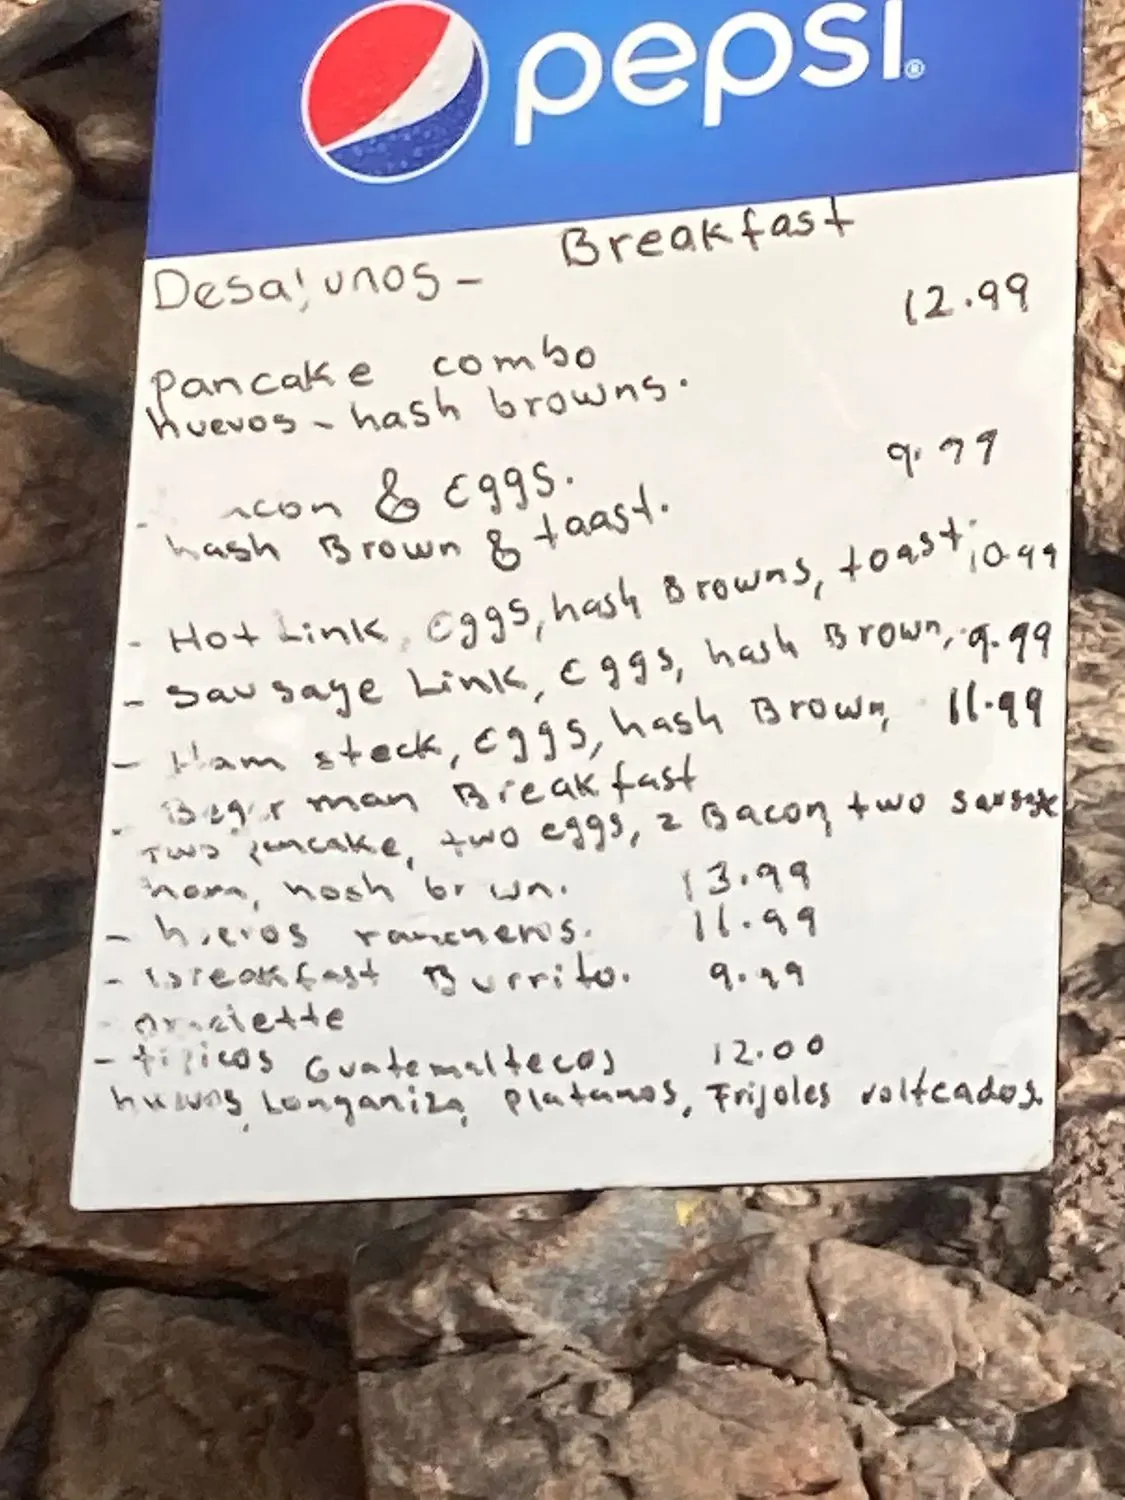 pepsi®
Desayunos - Breakfast
12.99
Pancake combo
huevos - hash browns.
& Eggs. 9.99
hash Brown & taast.
- Hot Link, Eggs, hash Browns, toast. 10.99
- Sausage Link, Eggs, hash Brown, 9.99
- Ham steck, Eggs, hash Brown, 11.99
- man Breakfast
Two pancake, two eggs, 2 Bacon, two
ham, hash brown. 13.99
- huevos rancheros. 11.99
- Breakfast Burrito. 9.99
- omelette
- tipicos Guatemaltecos 12.00
huevos, Longaniza, Platanos, Frijoles volteados.